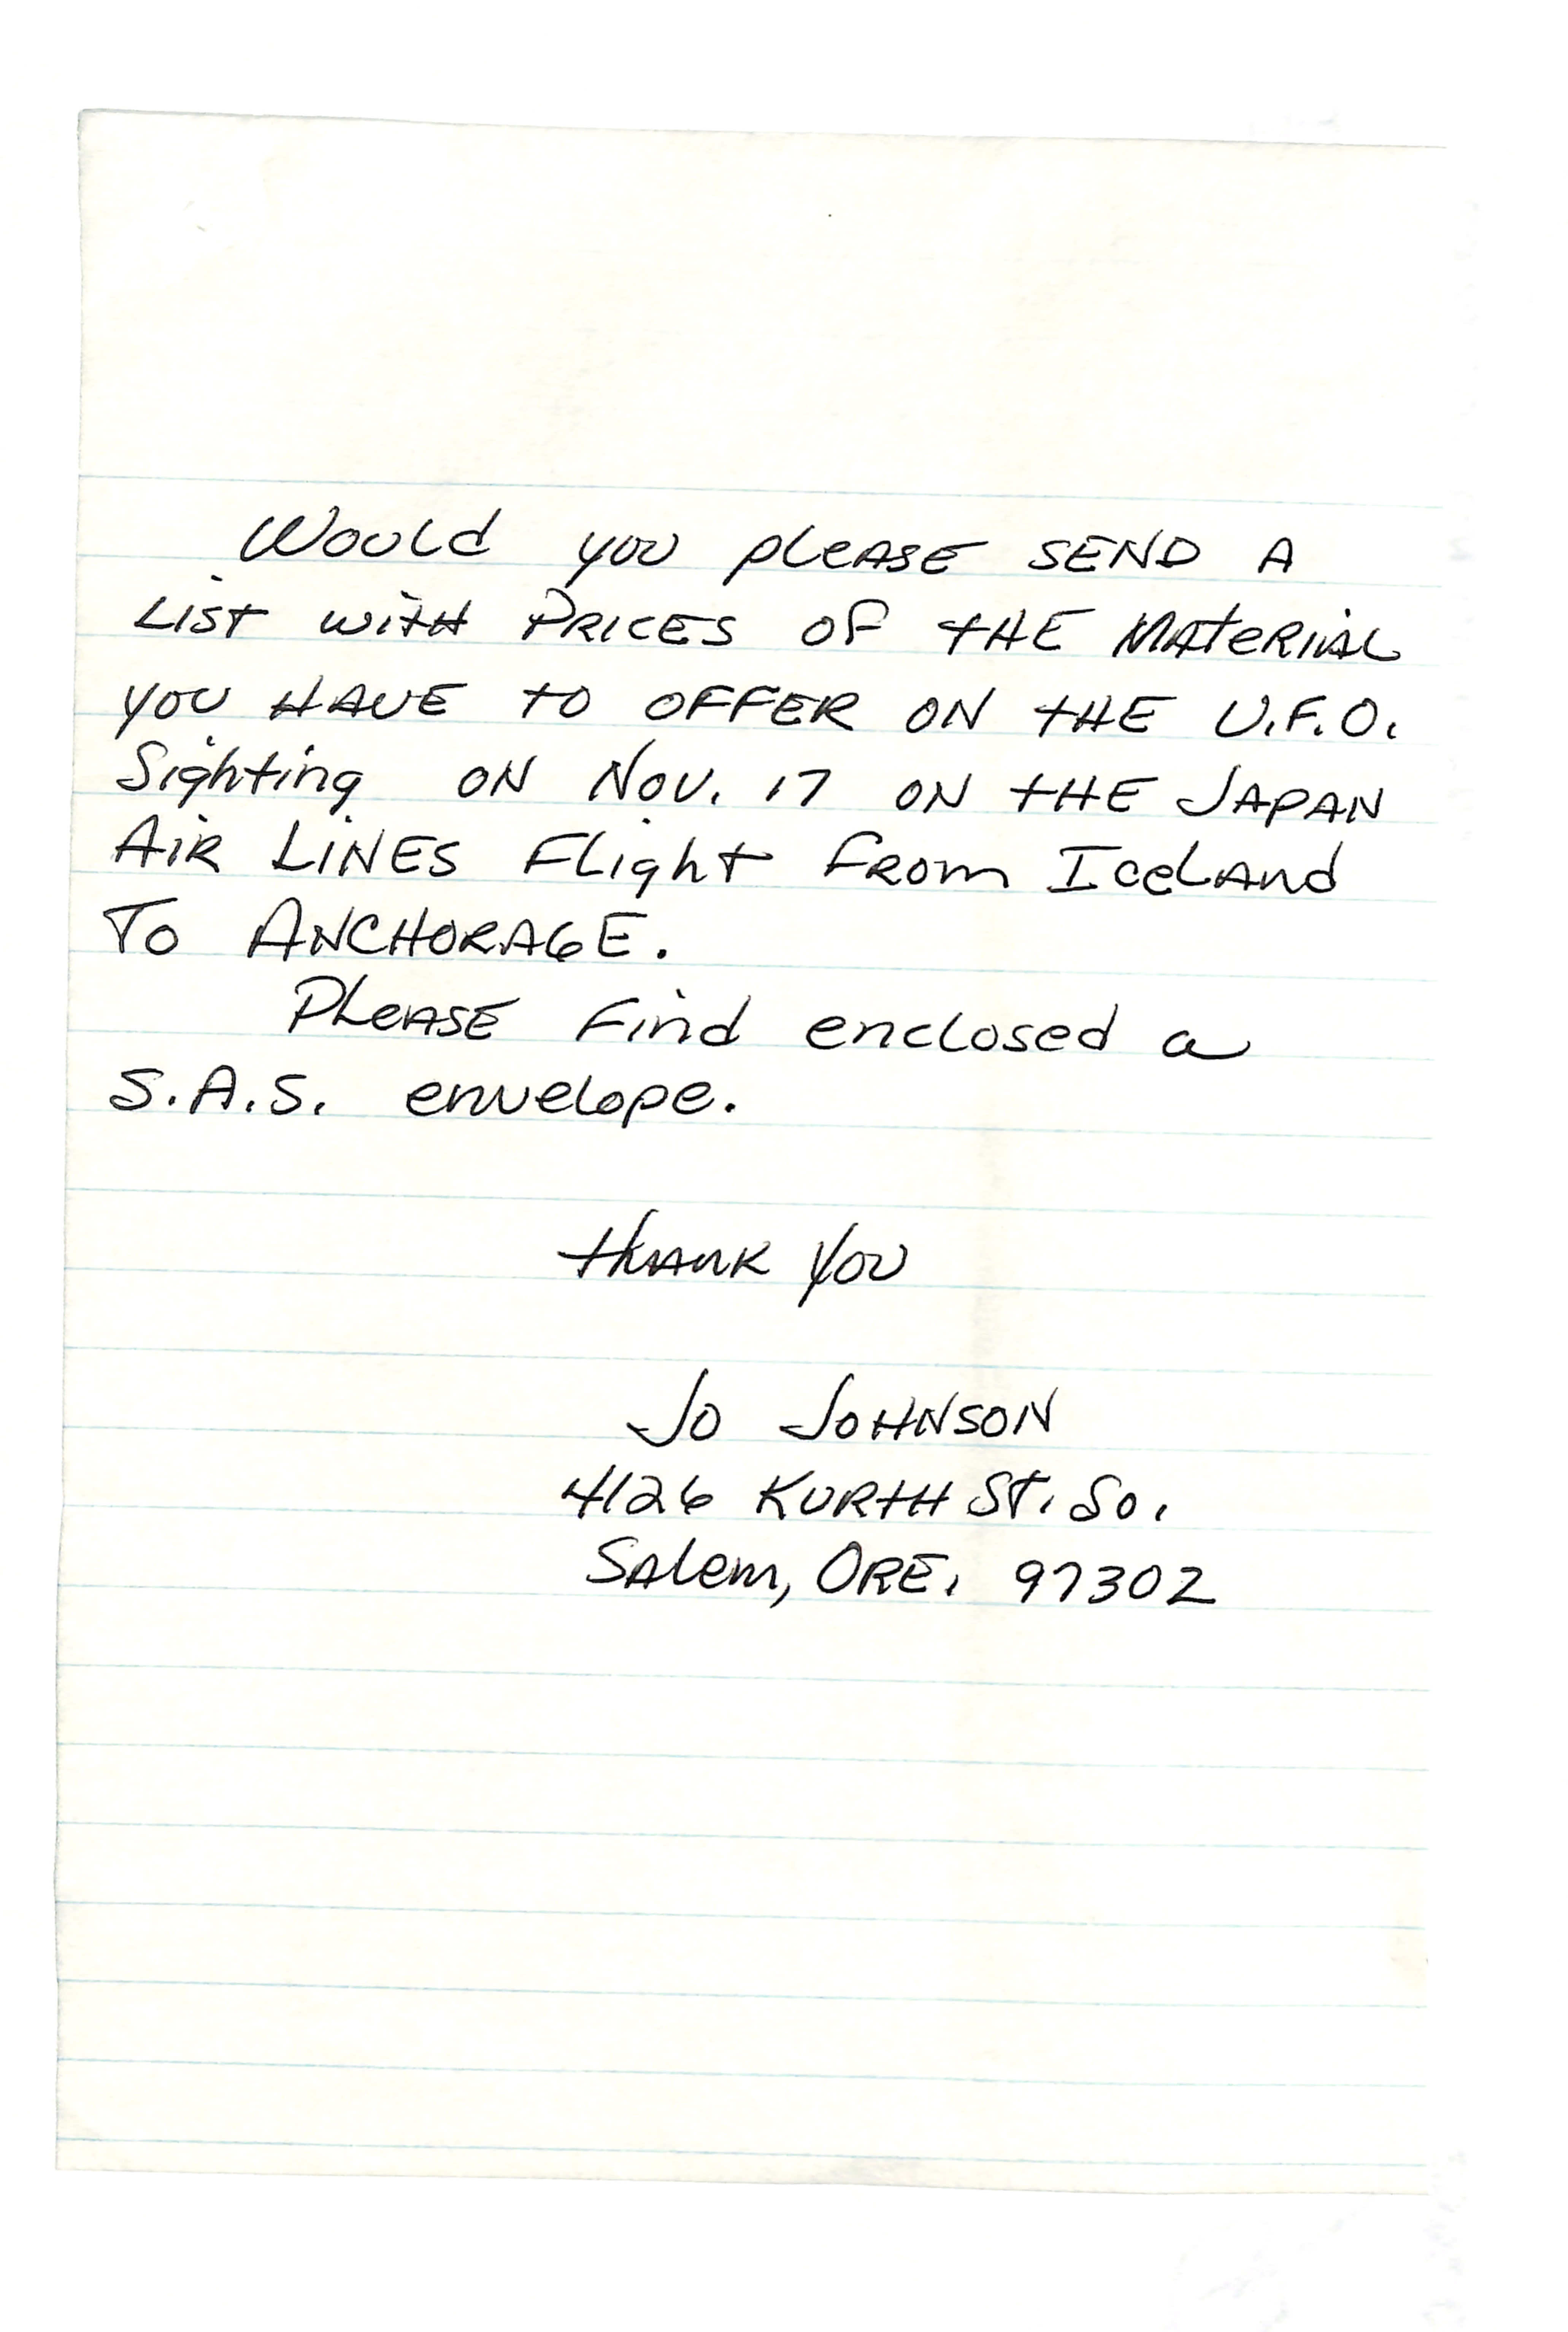 Would you please SEND A
List with Prices of the Material
you HAVE to OFFER ON the U.F.O.
Sighting ON Nov. 17 ON the JAPAN
Air LiNES Flight from Iceland
To ANCHORAGE.
Please find enclosed a
S.A.S. envelope.
thank You
Jo JOHNSON
4126 KURTH St. So.
Salem, ORE. 97302